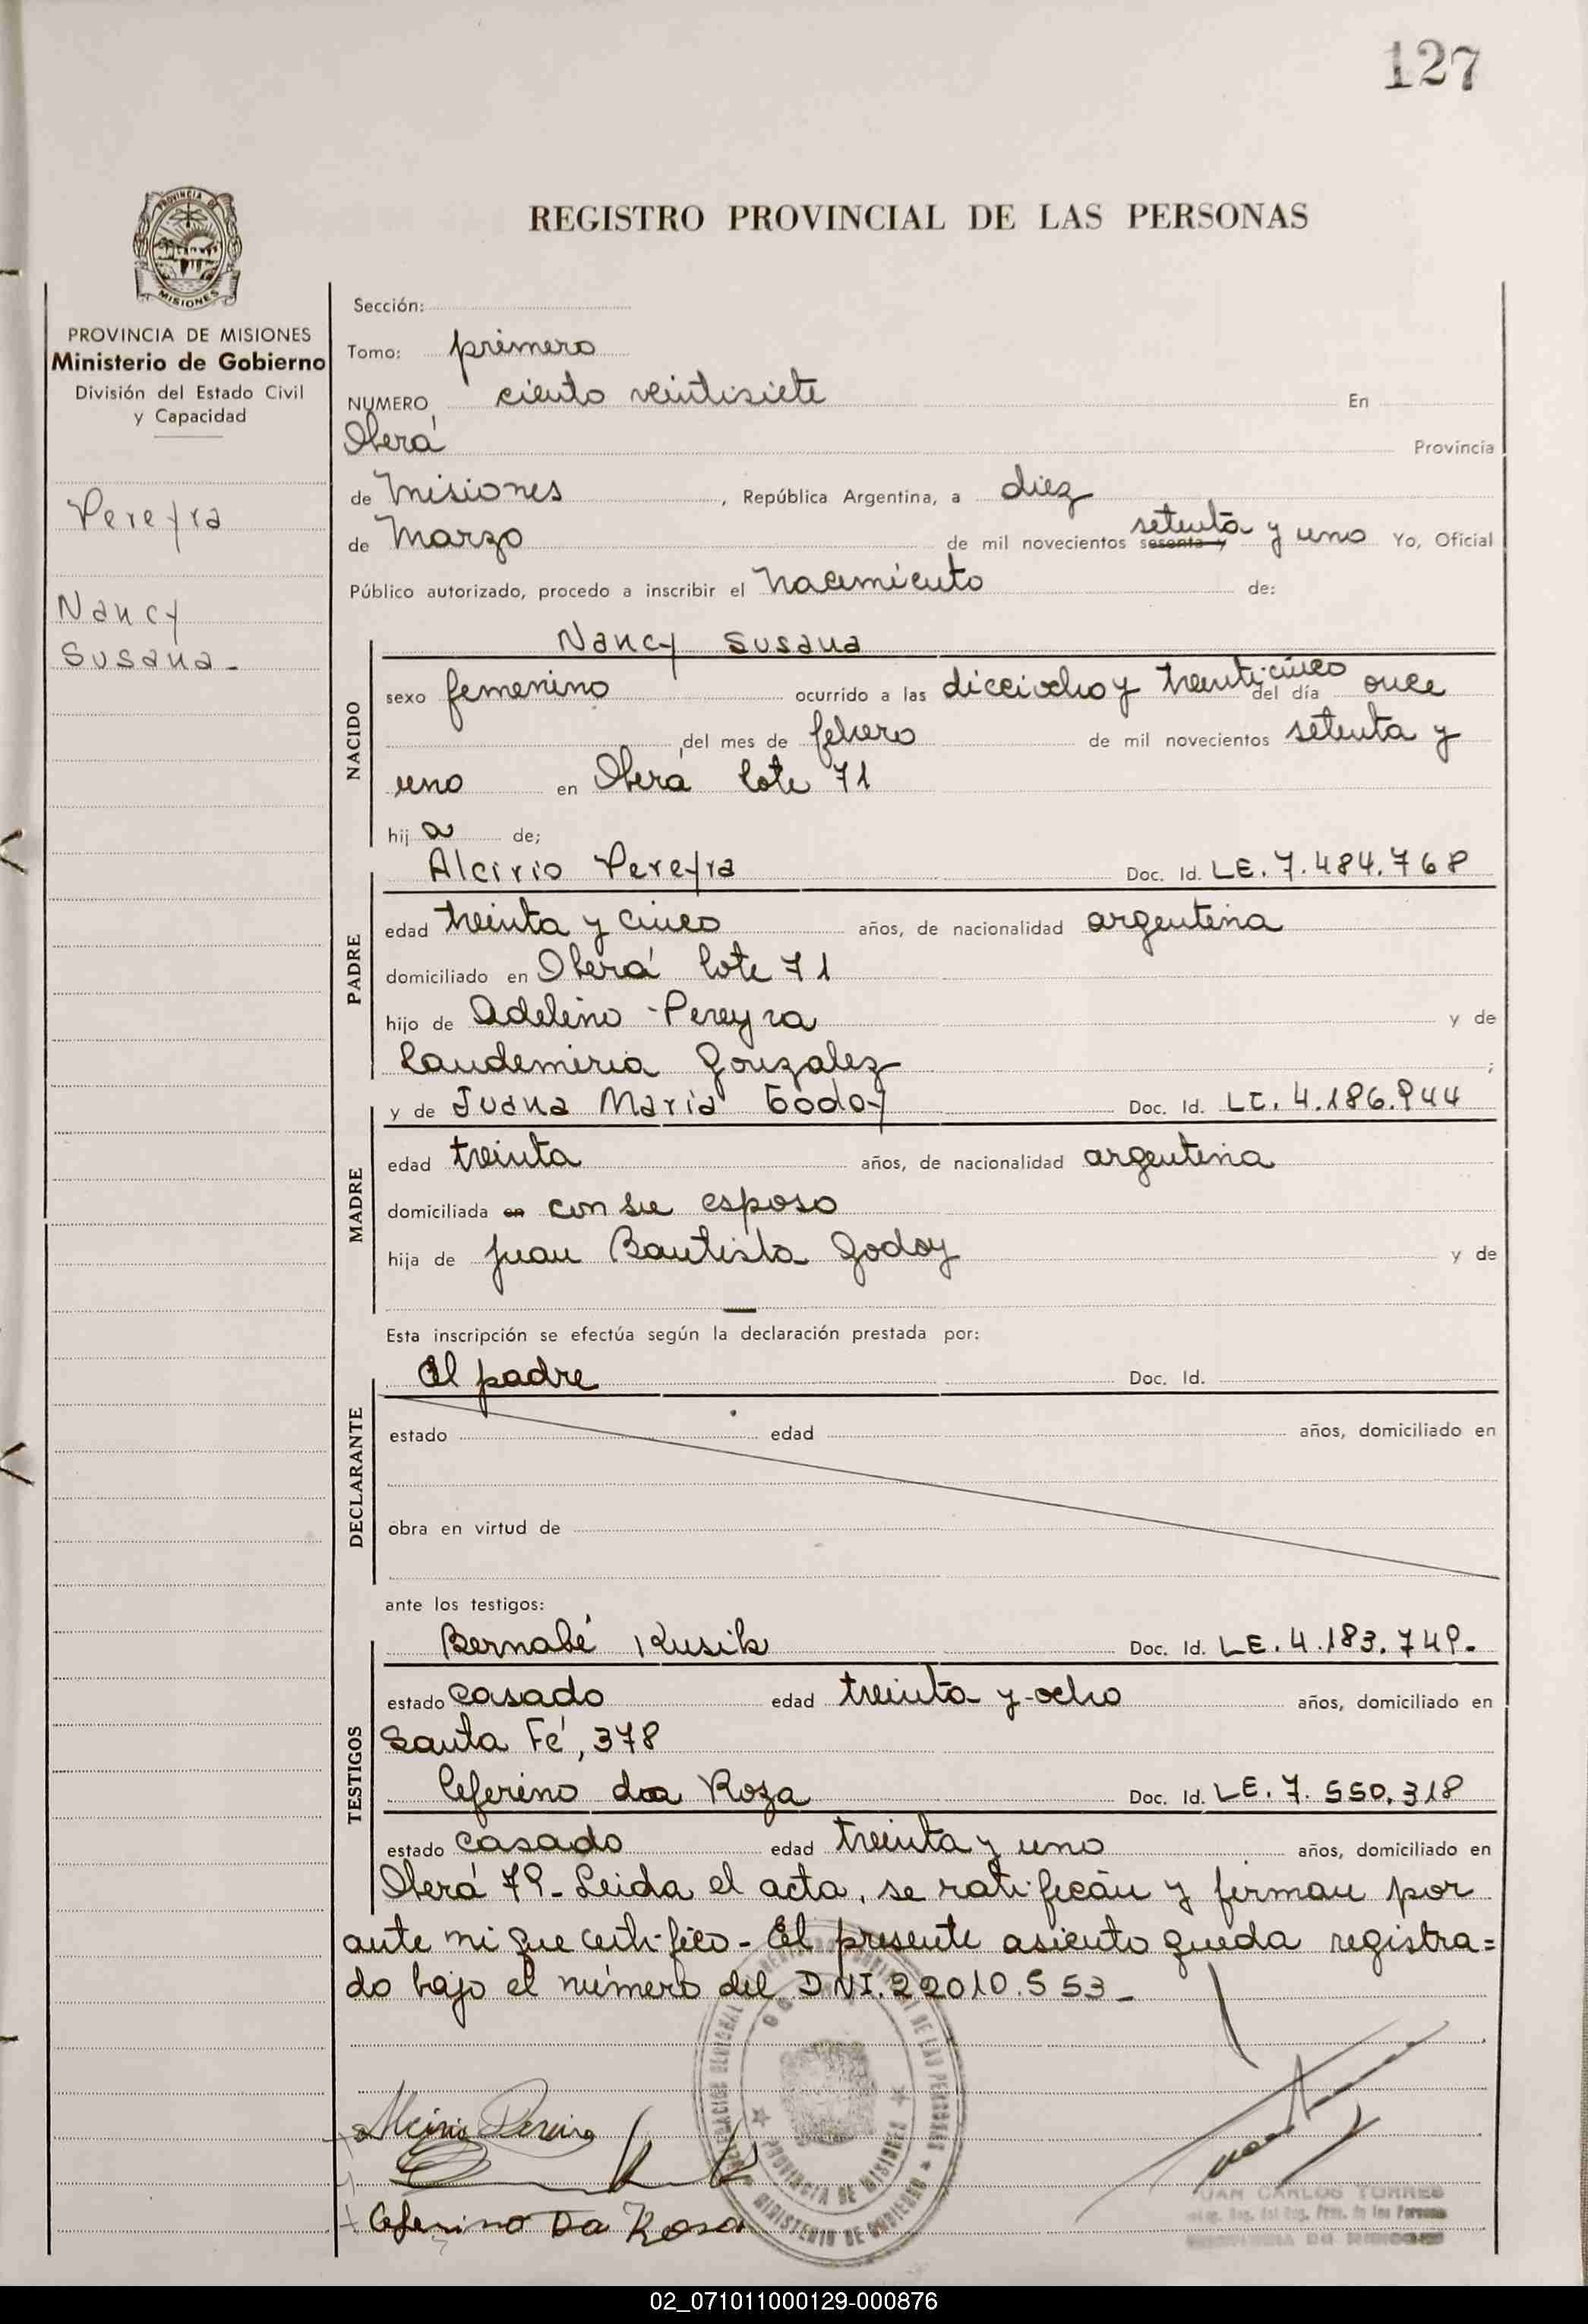 127
PROVINCIA DE
MISIONES
REGISTRO PROVINCIAL DE LAS PERSONAS
PROVINCIA DE MISIONES
Ministerio de Gobierno
División del Estado Civil
y Capacidad
Pereyra
Nancy
Susana-
Sección:
Tomo: primero
NUMERO ciento veintisiete En
Oberá Provincia
de Misiones, República Argentina, a diez
de Marzo de mil novecientos sesenta y setenta y uno Yo, Oficial
Público autorizado, procedo a inscribir el nacimiento de:
NACIDO
Nancy Susana
sexo femenino ocurrido a las dieciocho y treinticinco del día once
del mes de febrero de mil novecientos setenta y
uno en Oberá lote 71
hija de;
PADRE
Alcirio Pereyra Doc. Id. LE. 7.484.768
edad treinta y cinco años, de nacionalidad argentina
domiciliado en Oberá lote 71
hijo de Adelino Pereyra y de
Laudemiria Gonzalez ;
MADRE
y de Juana María Godoy Doc. Id. LC. 4.186.944
edad treinta años, de nacionalidad argentina
domiciliada en con su esposo
hija de Juan Bautista Godoy y de
Esta inscripción se efectúa según la declaración prestada por:
DECLARANTE
El padre Doc. Id.
estado edad años, domiciliado en
obra en virtud de
ante los testigos:
TESTIGOS
Bernabé Kusik Doc. Id. LE. 4.183.749.
estado casado edad treinta y ocho años, domiciliado en
Santa Fé, 378
Ceferino da Roza Doc. Id. LE. 7.550.318
estado casado edad treinta y uno años, domiciliado en
Oberá 79- Leida el acta, se ratifican y firman por
ante mi que certifico- El presente asiento queda registra=
do bajo el número del D.NI. 22010.553-
Alcirio Pereira
Ceferino Da Rosa
PROVINCIA DE MISIONES
MINISTERIO DE GOBIERNO
JUAN CARLOS TORRES
02_071011000129-000876